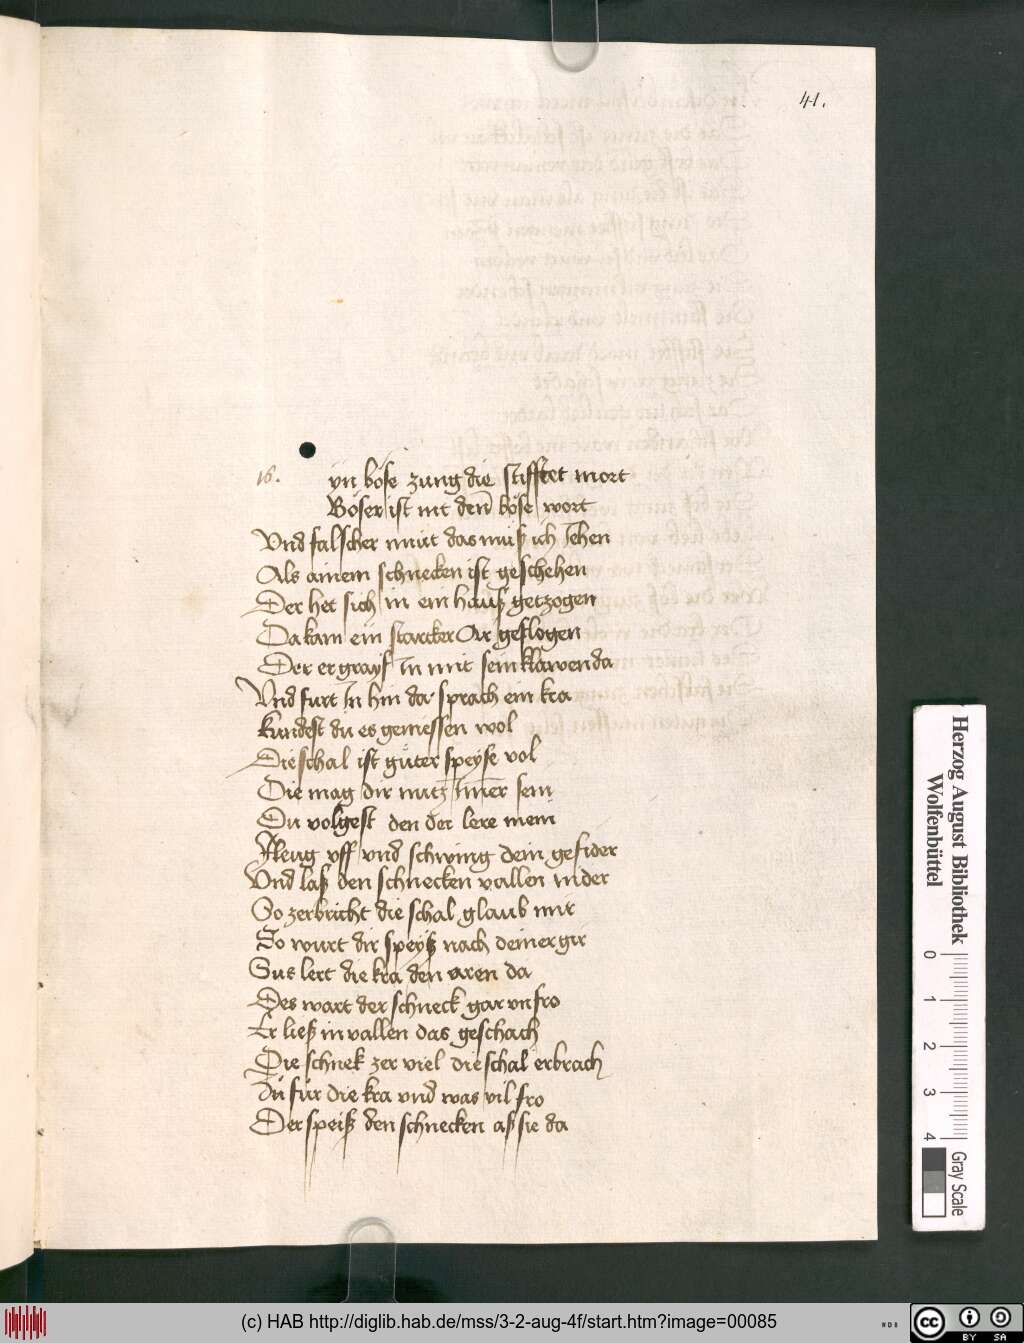 41.
16.
yn böse zung die stifftet mort
Böser ist nit den̄ böse wort
Vnd falscher mut das muß ich Jehen
Als ainem schnecken ist geschehen
Der het sich in ein hauß getzogen
Da kam ein starcker Ar geflogen
Der ergrayf in mit sein klawen da
Vnd furt Jn hin dar sprach ein kra
kundest du es gemessen wol
Die schal ist guter speyse vol
Die mag dir nutz Jm̄er sein
Du volgest den der lere mein
Fleug vff vnd schwing dein gefider
Vnd laß den schnecken vallen nider
So zerbricht die schal glaub mir
So wurt dir speyß nach deiner gir
Sus lert die kra den aren da
Des wart der schneck gar vnfro
Er ließ in vallen das geschach
Die schnek zer viel die schal erbrach
Du für die kra vnd was vil fro
Der speiß den schnecken aß sie da
Herzog August Bibliothek
Wolfenbüttel
0 1 2 3 4
Gray Scale
(c) HAB http://diglib.hab.de/mss/3-2-aug-4f/start.htm?image=00085
cc BY SA